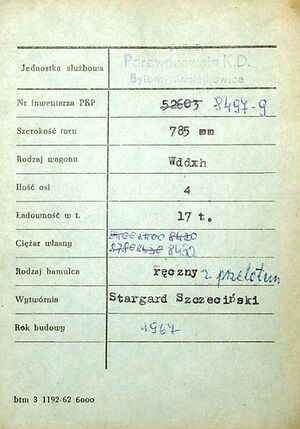 Parowozownia K.D.
Jednostka służbowa
Bytom, Maciejkowice
Nr inwentarza PKP 52603 8497-9
Szerokość toru 785 mm
Rodzaj wagonu Wddxh
Ilość osi 4
Ładowność w t. 17 t.
8400 8420
Ciężar własny 8450
Rodzaj hamulca ręczny z przelotem
Wytwórnia Stargard Szczeciński
Rok budowy 1967
btm 3 1192-62 6000